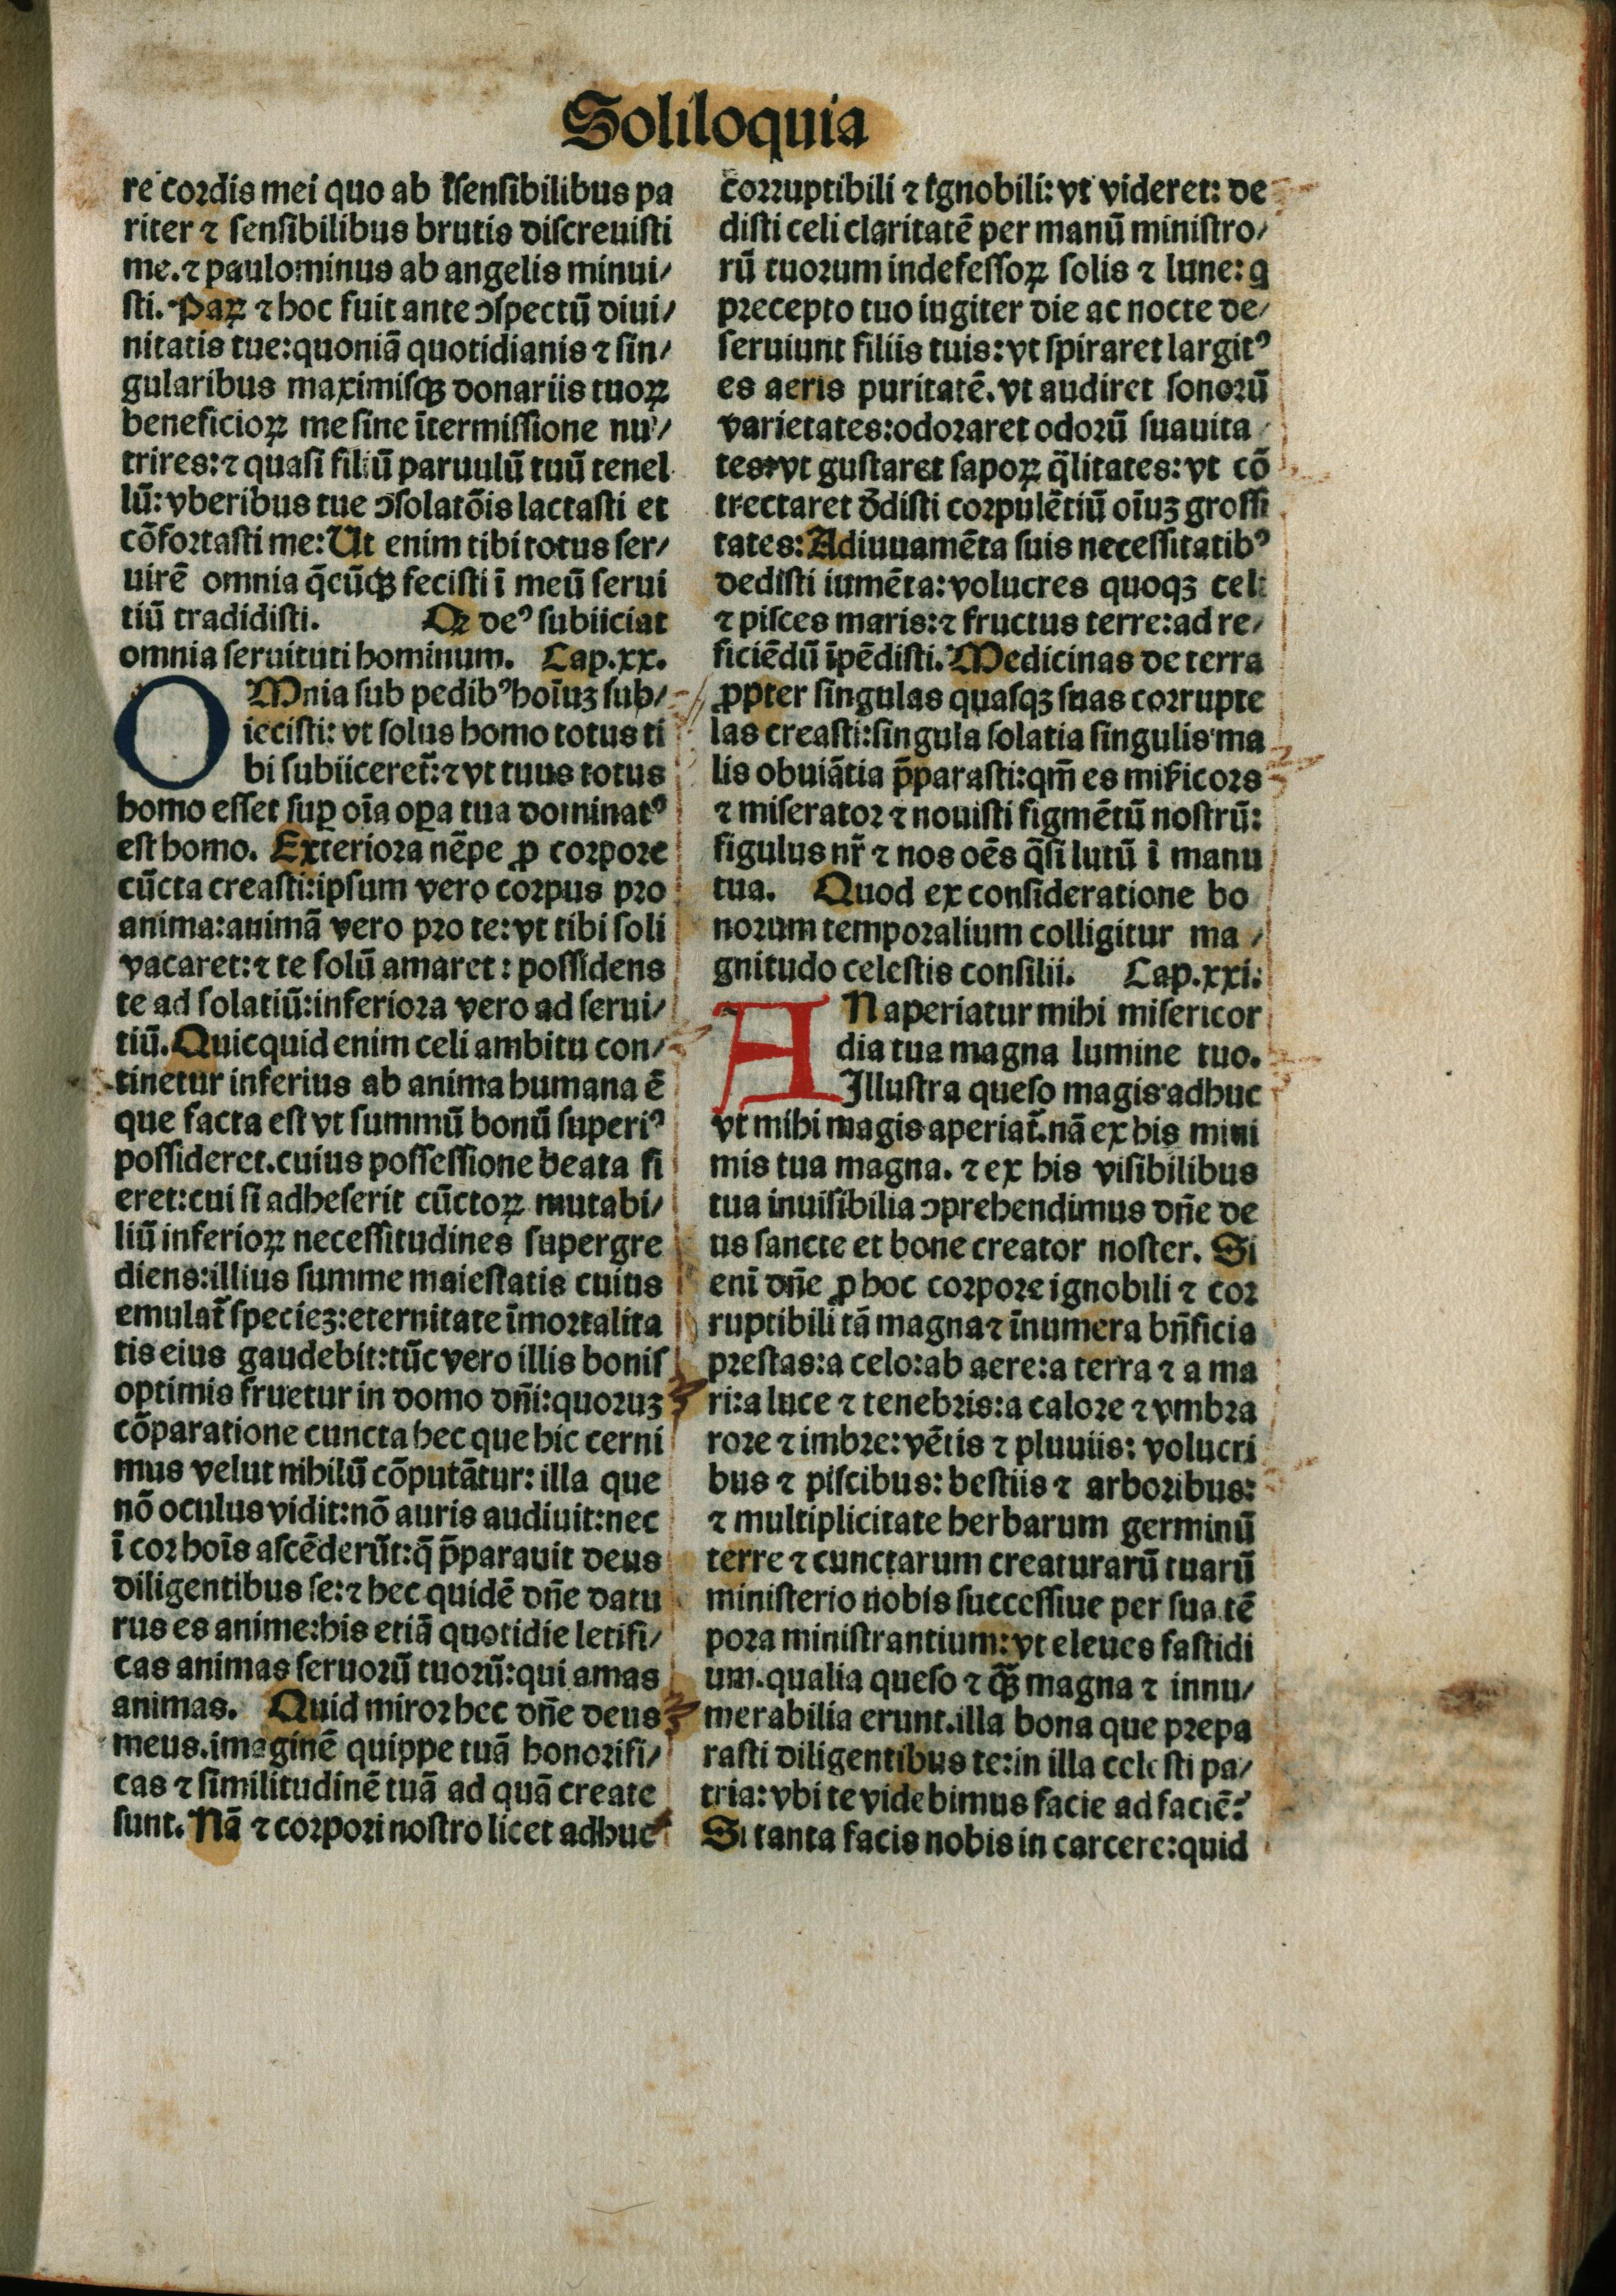 Soliloquia
re cordis mei quo ab īsensibilibus pa
riter ⁊ sensibilibus brutis discreuisti
me.⁊ paulominus ab angelis minui/
sti. Paꝝ ⁊ hoc fuit ante ↄspectū diui/
nitatis tue:quoniā quotidianis ⁊ sin/
gularibus maximisqꝫ donariis tuoꝝ
beneficioꝝ me sine ītermissione nu/
trires:⁊ quasi filiū paruulū tuū tenel
lū:vberibus tue ↄsolatōis lactasti et
cōfortasti me:Ut enim tibi totus ser/
uirē omnia q̄cūqꝫ fecisti ī meū serui
tiū tradidisti. Qꝛ deꝰ subiiciat
omnia seruituti hominum. Cap.xx.
OMnia sub pedibꝰ hoīuꝫ sub/
iecisti: vt solus homo totus ti
bi subiiceret̄:⁊ vt tuus totus
homo esset suꝑ oīa oꝑa tua dominatꝰ
est homo. Exteriora nēpe ꝓ corpore
cūcta creasti:ipsum vero corpus pro
anima:animā vero pro te:vt tibi soli
vacaret:⁊ te solū amaret: possidens
te ad solatiū:inferiora vero ad serui/
tiū.Quicquid enim celi ambitu con/
tinetur inferius ab anima humana ē
que facta est vt summū bonū superiꝰ
possideret.cuius possessione beata fi
eret:cui si adheserit cūctoꝝ mutabi/
liū inferioꝝ necessitudines supergre
diens:illius summe maiestatis cuius
emulat̄ specieꝫ:eternitate īmortalita
tis eius gaudebit:tūc vero illis bonis
optimis fruetur in domo dn̄i:quoruꝫ
cōparatione cuncta hec que hic cerni
mus velut nihilū cōputātur: illa que
nō oculus vidit:nō auris audiuit:nec
ī cor hoīs ascēderūt:q̄ p̄parauit deus
diligentibus se:⁊ hec quidē dn̄e datu
rus es anime:his etiā quotidie letifi/
cas animas seruorū tuorū:qui amas
animas. Quid miror hec dn̄e deus
meus.imaginē quippe tuā honorifi/
cas ⁊ similitudinē tuā ad quā create
sunt. Nā ⁊ corpori nostro licet adhuc
corruptibili ⁊ īgnobili: vt videret: de
disti celi claritatē per manū ministro/
rū tuorum indefessoꝝ solis ⁊ lune: q
precepto tuo iugiter die ac nocte de/
seruiunt filiis tuis: vt spiraret largitꝰ
es aeris puritatē. vt audiret sonorū
varietates:odoraret odorū suauita
tes:vt gustaret sapoꝝ q̄litates: vt cō
trectaret d̄disti corpulētiū oīuꝫ grossi
tates: Adiuuamēta suis necessitatibꝰ
dedisti iumēta: volucres quoqꝫ celi
⁊ pisces maris:⁊ fructus terre:ad re/
ficiēdū īpēdisti. Medicinas de terra
ꝓpter singulas quasqꝫ suas corrupte
las creasti:singula solatia singulis ma
lis obuiātia p̄parasti:qm̄ es mīcors
⁊ miserator ⁊ nouisti figmētū nostrū:
figulus nr̄ ⁊ nos oēs q̄si lutū ī manu
tua. Quod ex consideratione bo
norum temporalium colligitur ma /
gnitudo celestis consilii. Cap.xxi.
AN aperiatur mihi misericor
dia tua magna lumine tuo.
Illustra queso magis adhuc
vt mihi magis aperiat̄.nā ex his mini
mis tua magna. ⁊ ex his visibilibus
tua inuisibilia ↄprehendimus dn̄e de
us sancte et bone creator noster. Si
enī dn̄e ꝓ hoc corpore ignobili ⁊ cor
ruptibili tā magna ⁊ īnumera bn̄ficia
prestas:a celo:ab aere:a terra ⁊ a ma
ri:a luce ⁊ tenebris:a calore ⁊ vmbra
rore ⁊ imbre: vētis ⁊ pluuiis: volucri
bus ⁊ piscibus: bestiis ⁊ arboribus:
⁊ multiplicitate herbarum germinū
terre ⁊ cunctarum creaturarū tuarū
ministerio nobis successiue per sua tē
pora ministrantium: vt eleues fastidi
um.qualia queso ⁊ qꝫ̄ magna ⁊ innu/
merabilia erunt.illa bona que prepa
rasti diligentibus te:in illa celesti pa/
tria: vbi te videbimus facie ad faciē?
Si tanta facis nobis in carcere:quid